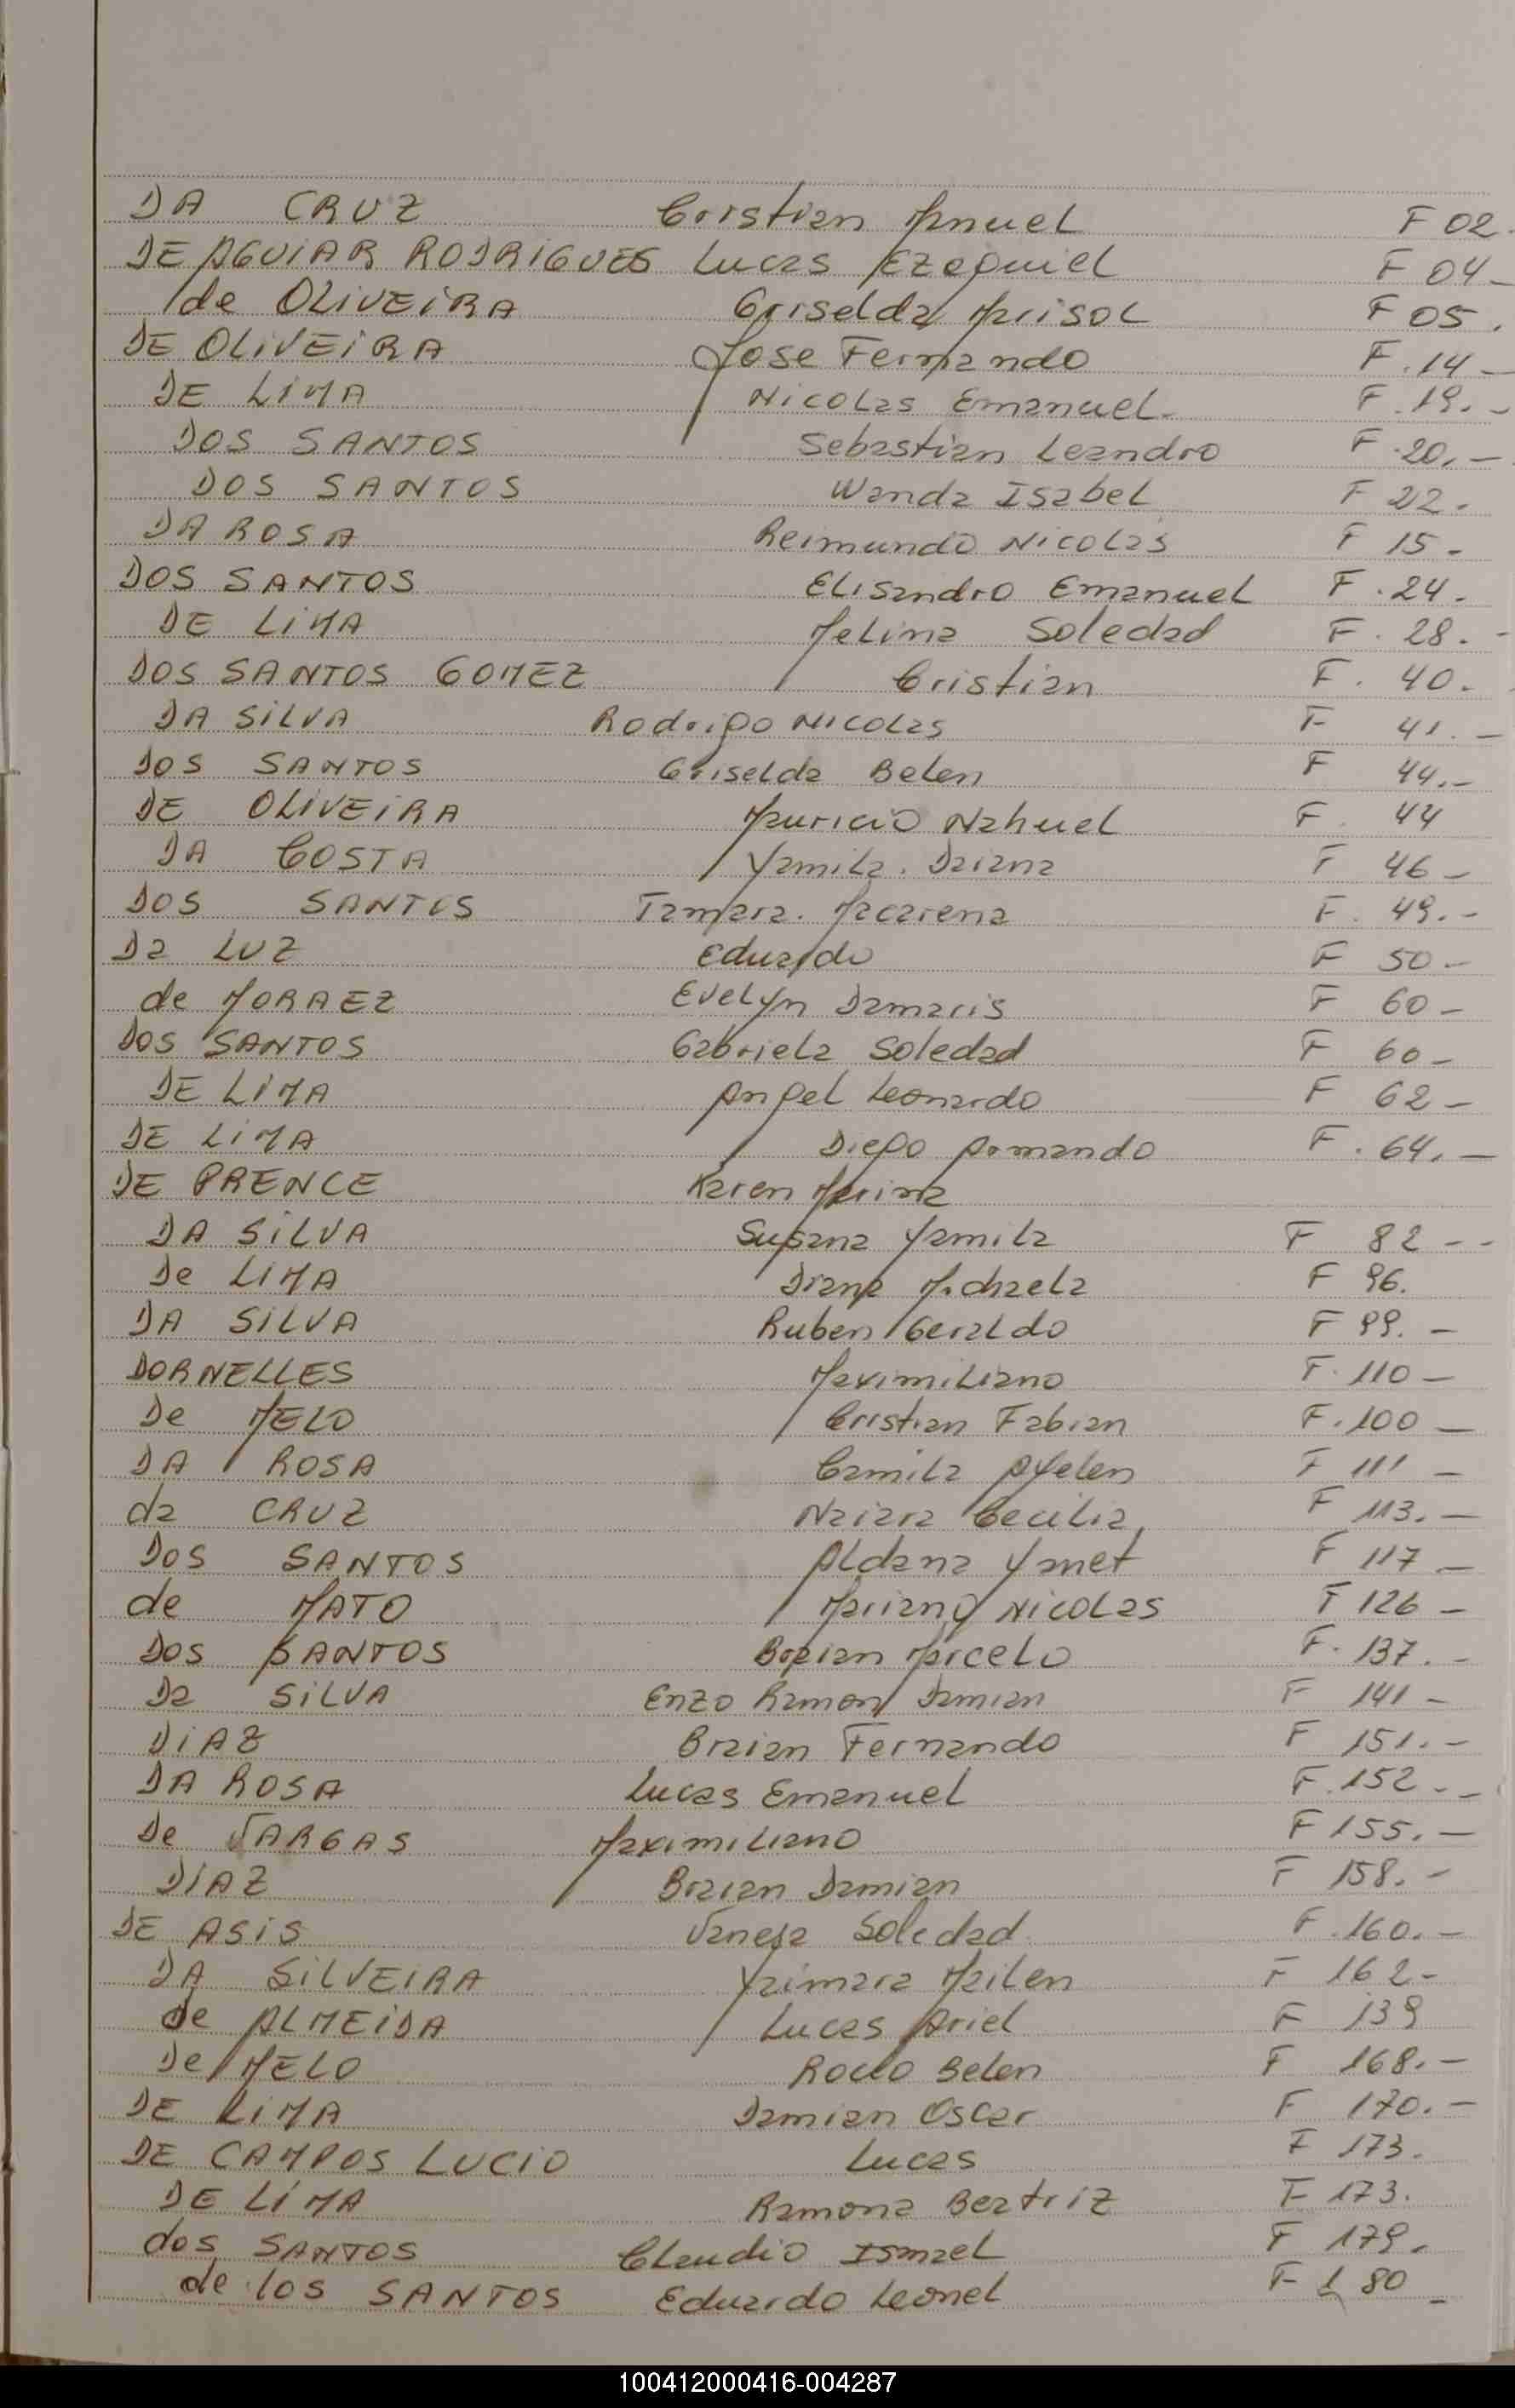 DA CRUZ Cristian Manuel F 02.
DE AGUIAR RODRIGUES Lucas Ezequiel F 04 -
de OLIVEIRA Griselda Marisol F 05.
DE OLIVEIRA Jose Fernando F. 14 -
DE LIMA Nicolas Emanuel- F. 19. -
DOS SANTOS Sebastian Leandro F. 20, -
DOS SANTOS Wanda Isabel F 22.
DA ROSA Reimundo Nicolas F 15 -
DOS SANTOS Elisandro Emanuel F. 24.
DE LIMA Melina Soledad F. 28. -
DOS SANTOS GOMEZ Cristian F. 40.
DA SILVA Rodrigo Nicolas F 41. -
DOS SANTOS Griselda Belen F 44. -
DE OLIVEIRA Mauricio Nahuel F. 44
DA COSTA Yamila. Daiana F 46 -
DOS SANTOS Tamara. Macarena F. 49. -
Da LUZ Eduardo F 50 -
de MORAEZ Evelyn Damaris F 60 -
DOS SANTOS Gabriela Soledad F 60 -
DE LIMA Angel Leonardo F 62 -
DE LIMA Diego Armando F. 64. -
DE PRENCE Karen Marina
DA SILVA Susana Yamila F 82 - -
De LIMA Diana Michaela F 96.
DA SILVA Ruben Geraldo F 99. -
DORNELLES Maximiliano F. 110 -
De MELO Cristian Fabian F. 100 -
DA ROSA Camila Ayelen F 111 -
da CRUZ Naiara Cecilia F 113. -
DOS SANTOS Aldana Yanet F 117 -
de MATO Mariano Nicolas F 126 -
DOS SANTOS Marcelo F. 137. -
Da SILVA Enzo Ramon Damian F 141 -
DIAZ Braian Fernando F 151. -
DA ROSA Lucas Emanuel F. 152 - -
De VARGAS Maximiliano F 155. -
DIAZ Braian Damian F 158. -
DE ASIS Vanesa Soledad F. 160. -
DA SILVEIRA Yaimara Mailen F 162 -
de ALMEIDA Lucas Ariel F 139
De MELO Rocio Belen F 168. -
DE LIMA Damian Oscar F 170. -
DE CAMPOS LUCIO Lucas F 173.
DE LIMA Ramona Beatriz F 173.
dos SANTOS Claudio Ismael F 179.
de los SANTOS Eduardo Leonel F 180 -
100412000416-004287